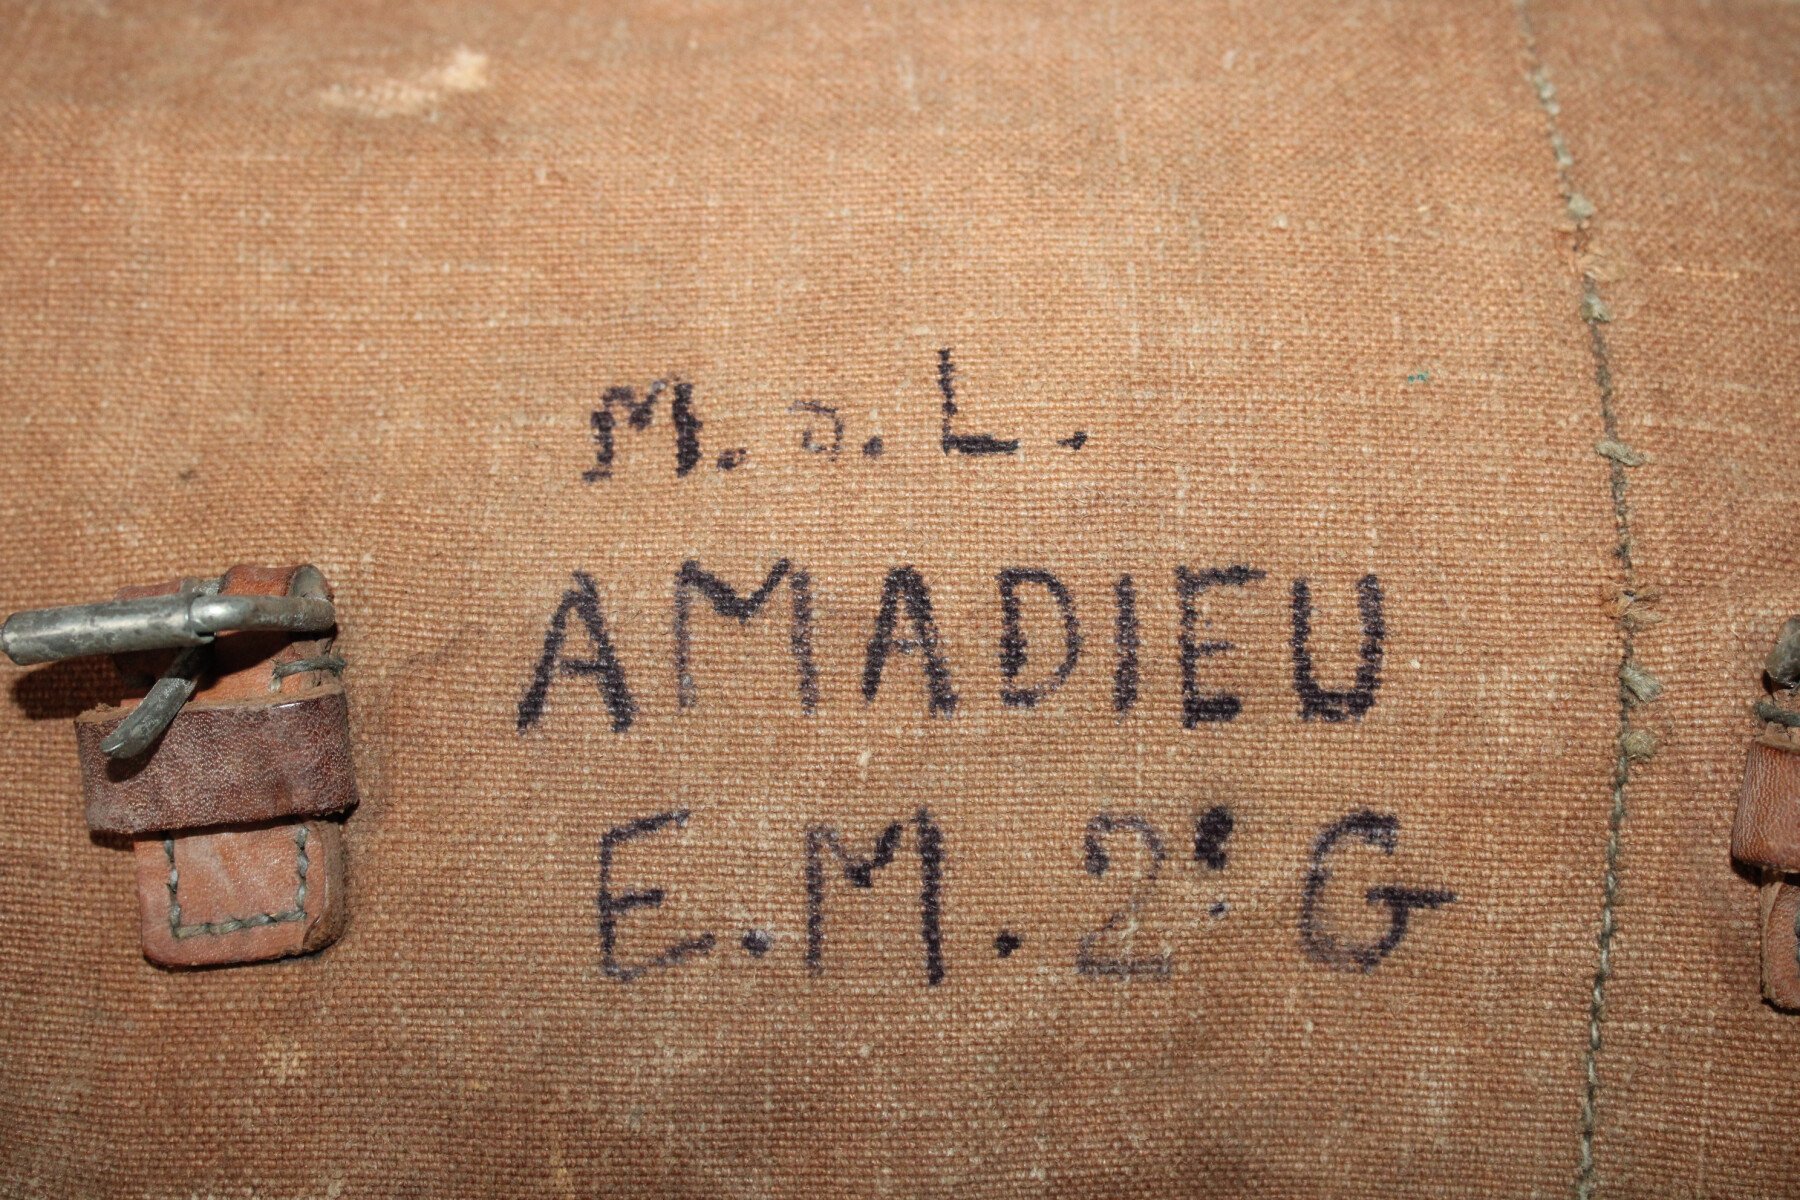 M. d. L.
AMADIEU
E.M. 2° G